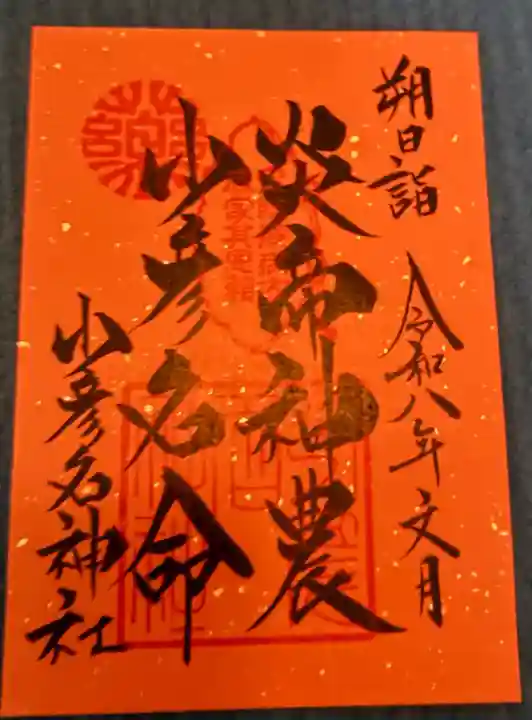 朔日詣
令和八年文月
炎帝神農
少彦名命
少彦名神社